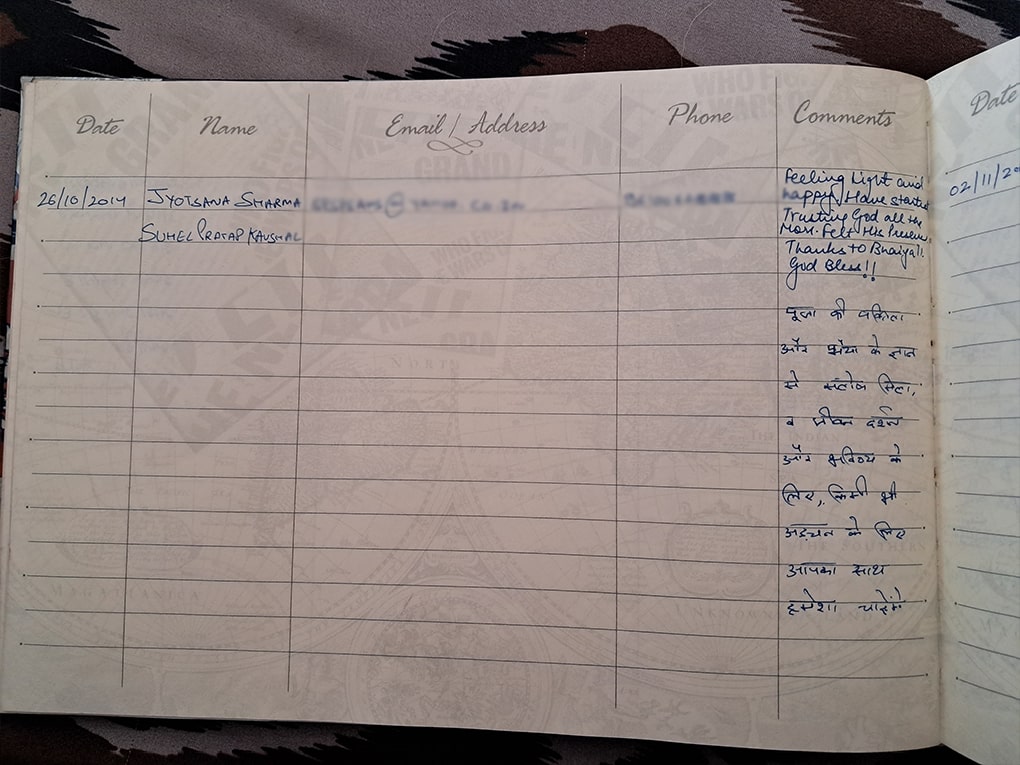 Date Name Email / Address Phone Comments Date
26/10/2014 JYOTSANA SHARMA
SUHEL PRATAP KAUSHAL
Feeling Light and
happy. Have started
Trusting God all the
More. Felt His Presence.
Thanks to Bhaiya!!
God Bless!!
पूजा की पवित्रता
और भैया के ज्ञान
से संतोष मिला,
व जीवन दर्शन
और भविष्य के
लिए, किसी भी
अड़चन के लिए
आपका साथ
हमेशा चाहेंगे
02/11/20